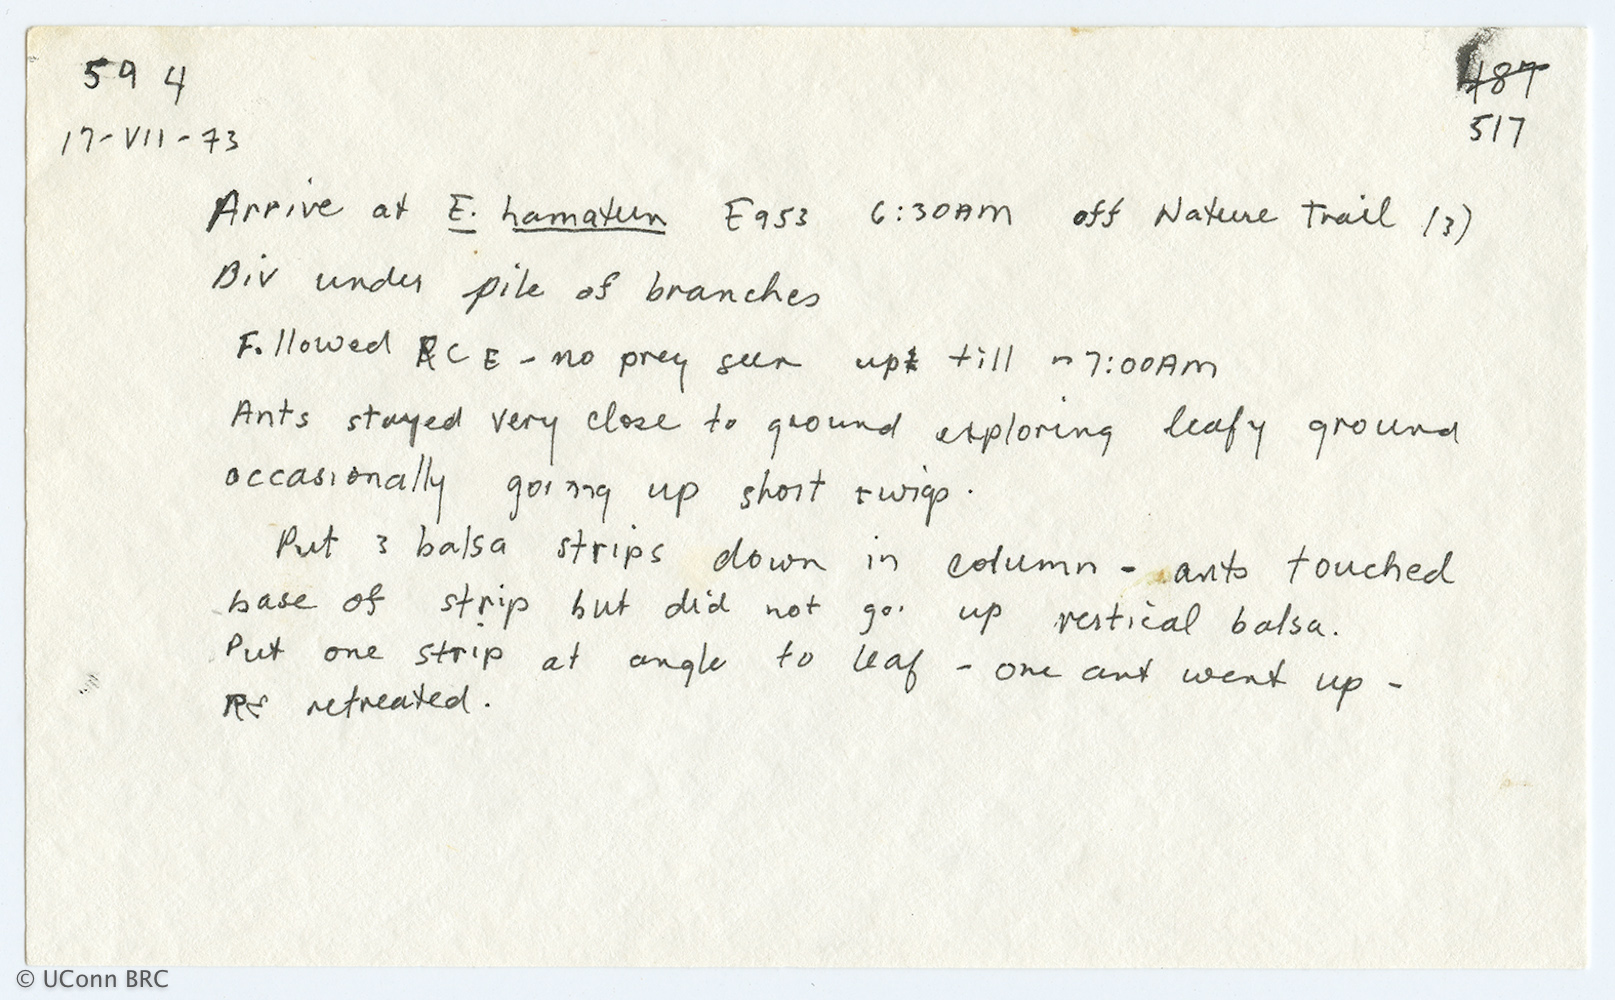 594
487
17-VII-73
517
Arrive at E. hamatum E953 6:30AM off Nature Trail (3)
Biv under pile of branches
Followed RCE - no prey seen up till ~7:00AM
Ants stayed very close to ground exploring leafy ground
occasionally going up short twigs.
Put 3 balsa strips down in column - ants touched
base of strip but did not go up vertical balsa.
Put one strip at angle to leaf - one ant went up -
retreated.
© UConn BRC